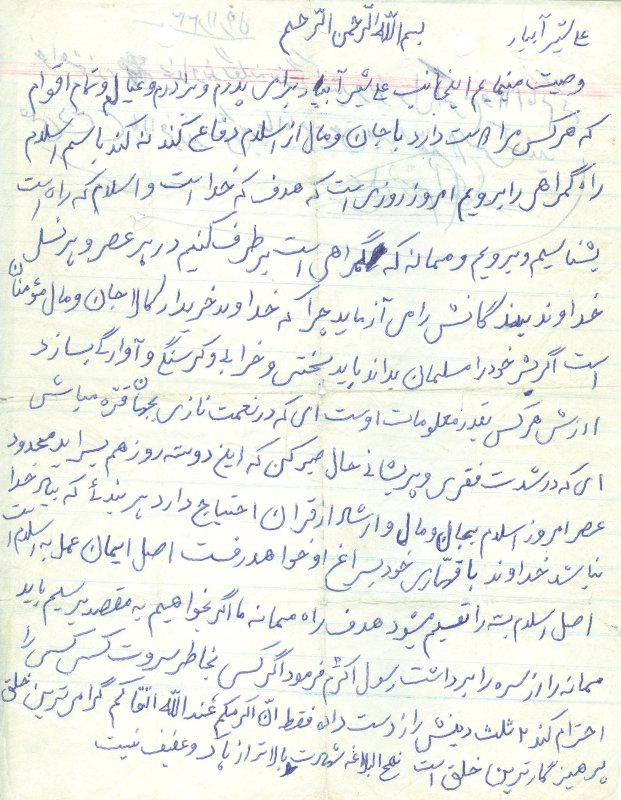 بسم الله الرحمن الرحیم
وصیت منمایم اینجانب علی شیر آبیار برامی پدرم و مادرم و عیالم و تمام اقوام
که هر کس مرا دوست دارد با جان و مال از اسلام دفاعی کند نه کند باسم اسلام
راه گمراهی را برویم امروز روزی است که هدف که خدا است و اسلام که راه است
بشناسیم و برویم و ممانه که گمراهی است بر طرف کنیم در هر عصر و هر نسل
خداوند بندگانش را می آزماید چرا که خداوند خریدار کالا جان و مال مؤمنان
است اگر بشر خود را مسلمان بداند باید بسختی و خرابی و گرسنگی و آوارگی بسازد
ارزش هر کس بقدر معلومات اوست ای که در نعمت نازی بجهان غره مباش
ای که در شدت فقری و پریشانی حال صبر کن که این دو سه روز هم بسر اید محدود
عصر امروز اسلام بجان و مال و ارشاد از قران احتیاج دارد هر بنده که بیاد خدا
نباشد خداوند با قهاری خود بسراغ او خواهد رفت اصل ایمان عمل به اسلام است
اصل اسلام بته را تقسیم میشود هدف راه ممانه ما اگر بخواهیم به مقصد برسیم باید
ممانه را از سر راه برداشت رسول اکرم فرمود اگر کسی بخاطر ثروت کس کسی را
احترام کند ۲ ثلث دینش را از دست داده فقط انّ اکرمکم عند الله اتقاکم گرامی ترین خلق
پرهیزگارترین خلق است نهج البلاغه شهادت بالاتر از پاک و عفیف نیست